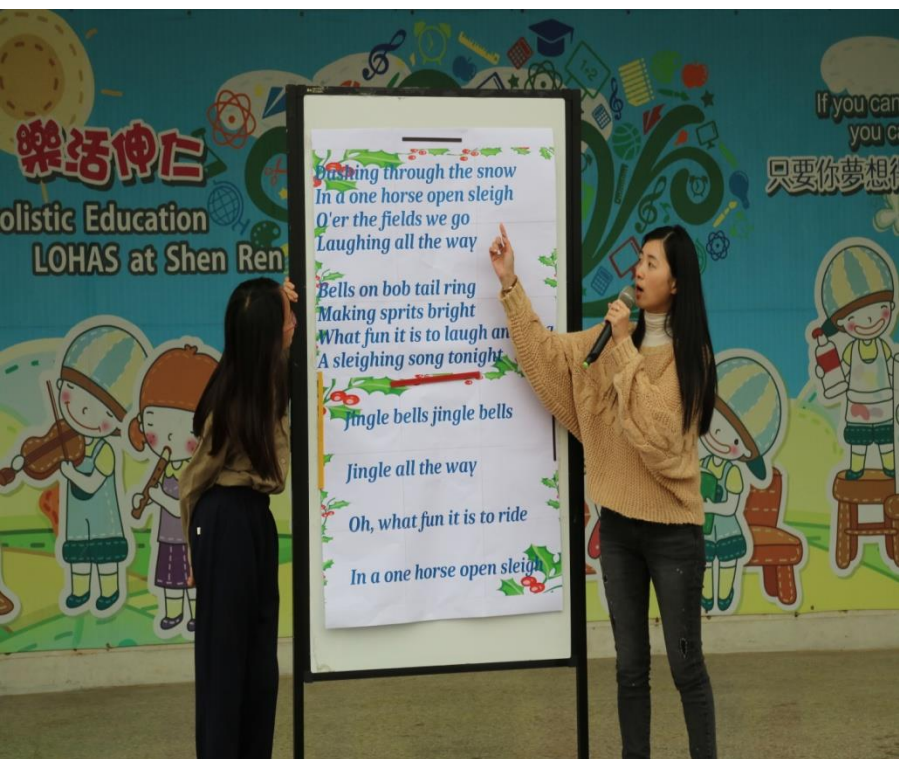 樂活伸仁
olistic Education
LOHAS at Shen Ren
If you can
you ca
只要你夢想得
1+2
Dashing through the snow
In a one horse open sleigh
O'er the fields we go
Laughing all the way
Bells on bob tail ring
Making sprits bright
What fun it is to laugh an
A sleighing song tonight
Jingle bells jingle bells
Jingle all the way
Oh, what fun it is to ride
In a one horse open sleigh